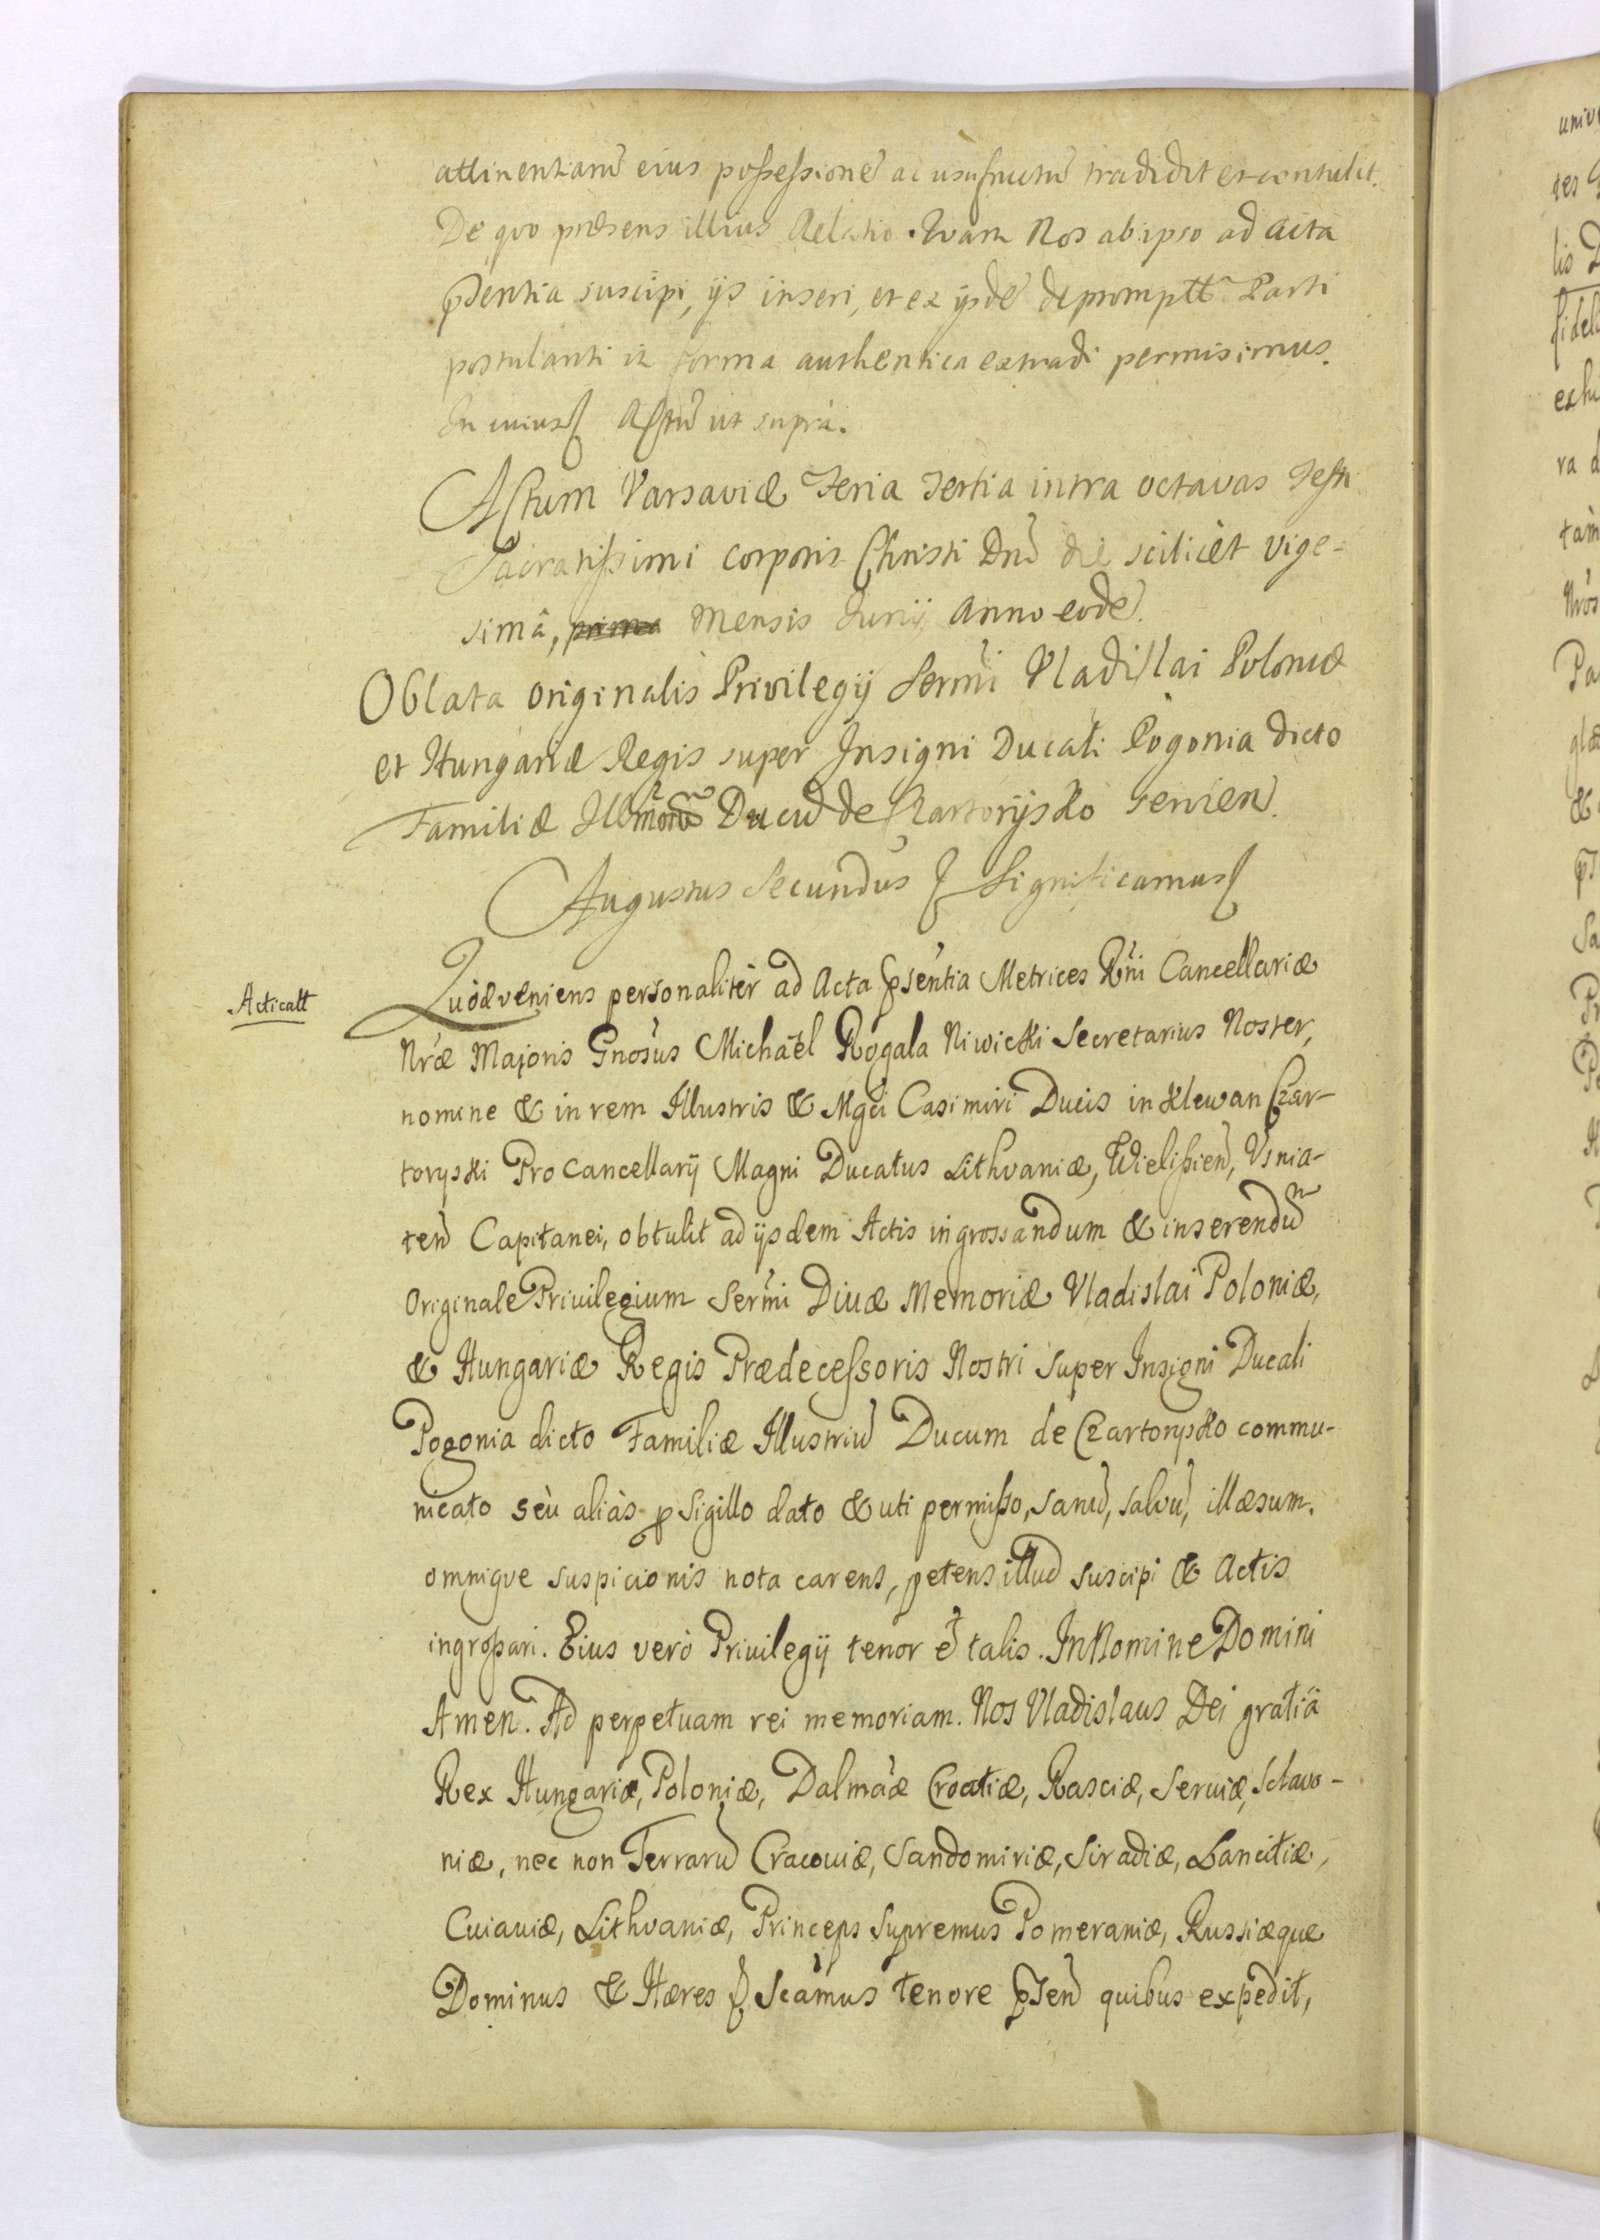 attinentiarũ eius possessionẽ ac usufructũ tradidit et contulit.
De quo præsens illius Relatio. Quam Nos ab ipso ad acta
pñtia suscipi, ijs inseri, et ex ijsdẽ depromptt Parti
postulanti in forma authentica extradi permisimus.
In cuius Actũ ut suprà.
Actum Varsaviæ Feria Tertia intra octavas Festi
Sacratissimi Corporis Christi Dnĩ die scilicèt vige-
simâ, prima mensis Iunij anno eodẽ.
Oblata originalis Privilegij Sermi Vladislai Poloniæ
et Hungariæ Regis super Insigni Ducali Pogonia dicto
Familiæ Illmorũ Ducũ de Czartorijsko servien.
Augustus Secundus Significamus
Acticatt
Quòd veniens personalitèr ad Acta psentia Metrices Rni Cancellariæ
Nræ Majoris Gnosus Michaël Rogala Niwicki Secretarius Noster,
nomine & in rem Illustris & Mgci Casimiri Ducis in Klewan Czar-
toryski Pro Cancellarij Magni Ducatus Lithvaniæ, Wielissieñ, Usnia-
teñ Capitanei, obtulit ad ijsdem Actis ingrossandum & inserendũ
Originale Privilegium Sermi Divæ Memoriæ Vladislai Poloniæ,
& Hungariæ Regis Prædecessoris Nostri super Insigni Ducali
Pogonia dicto Familiæ Illustriũ Ducum de Czartorysko commu-
nicato seù aliàs p Sigillo dato & uti permisso, sanũ, salvũ, illæsum.
omnique suspicionis nota carens, petens illud suscipi & Actis
ingrossari. Eius verò Privilegij tenor ẽ talis. In Nomine Domini
Amen. Ad perpetuam rei memoriam. Nos Vladislaus Dei gratiâ
Rex Hungariæ, Poloniæ, Dalmáæ Croatiæ, Rasciæ, Serviæ, Sclavo-
niæ, nec non Terrarũ Cracoviæ, Sandomiriæ, Siradiæ, Lancitiæ,
Cuiaviæ, Lithvaniæ, Princeps Supremus Pomeraniæ, Russiæque
Dominus & Hæres Scámus tenore pseñ quibus expedit,